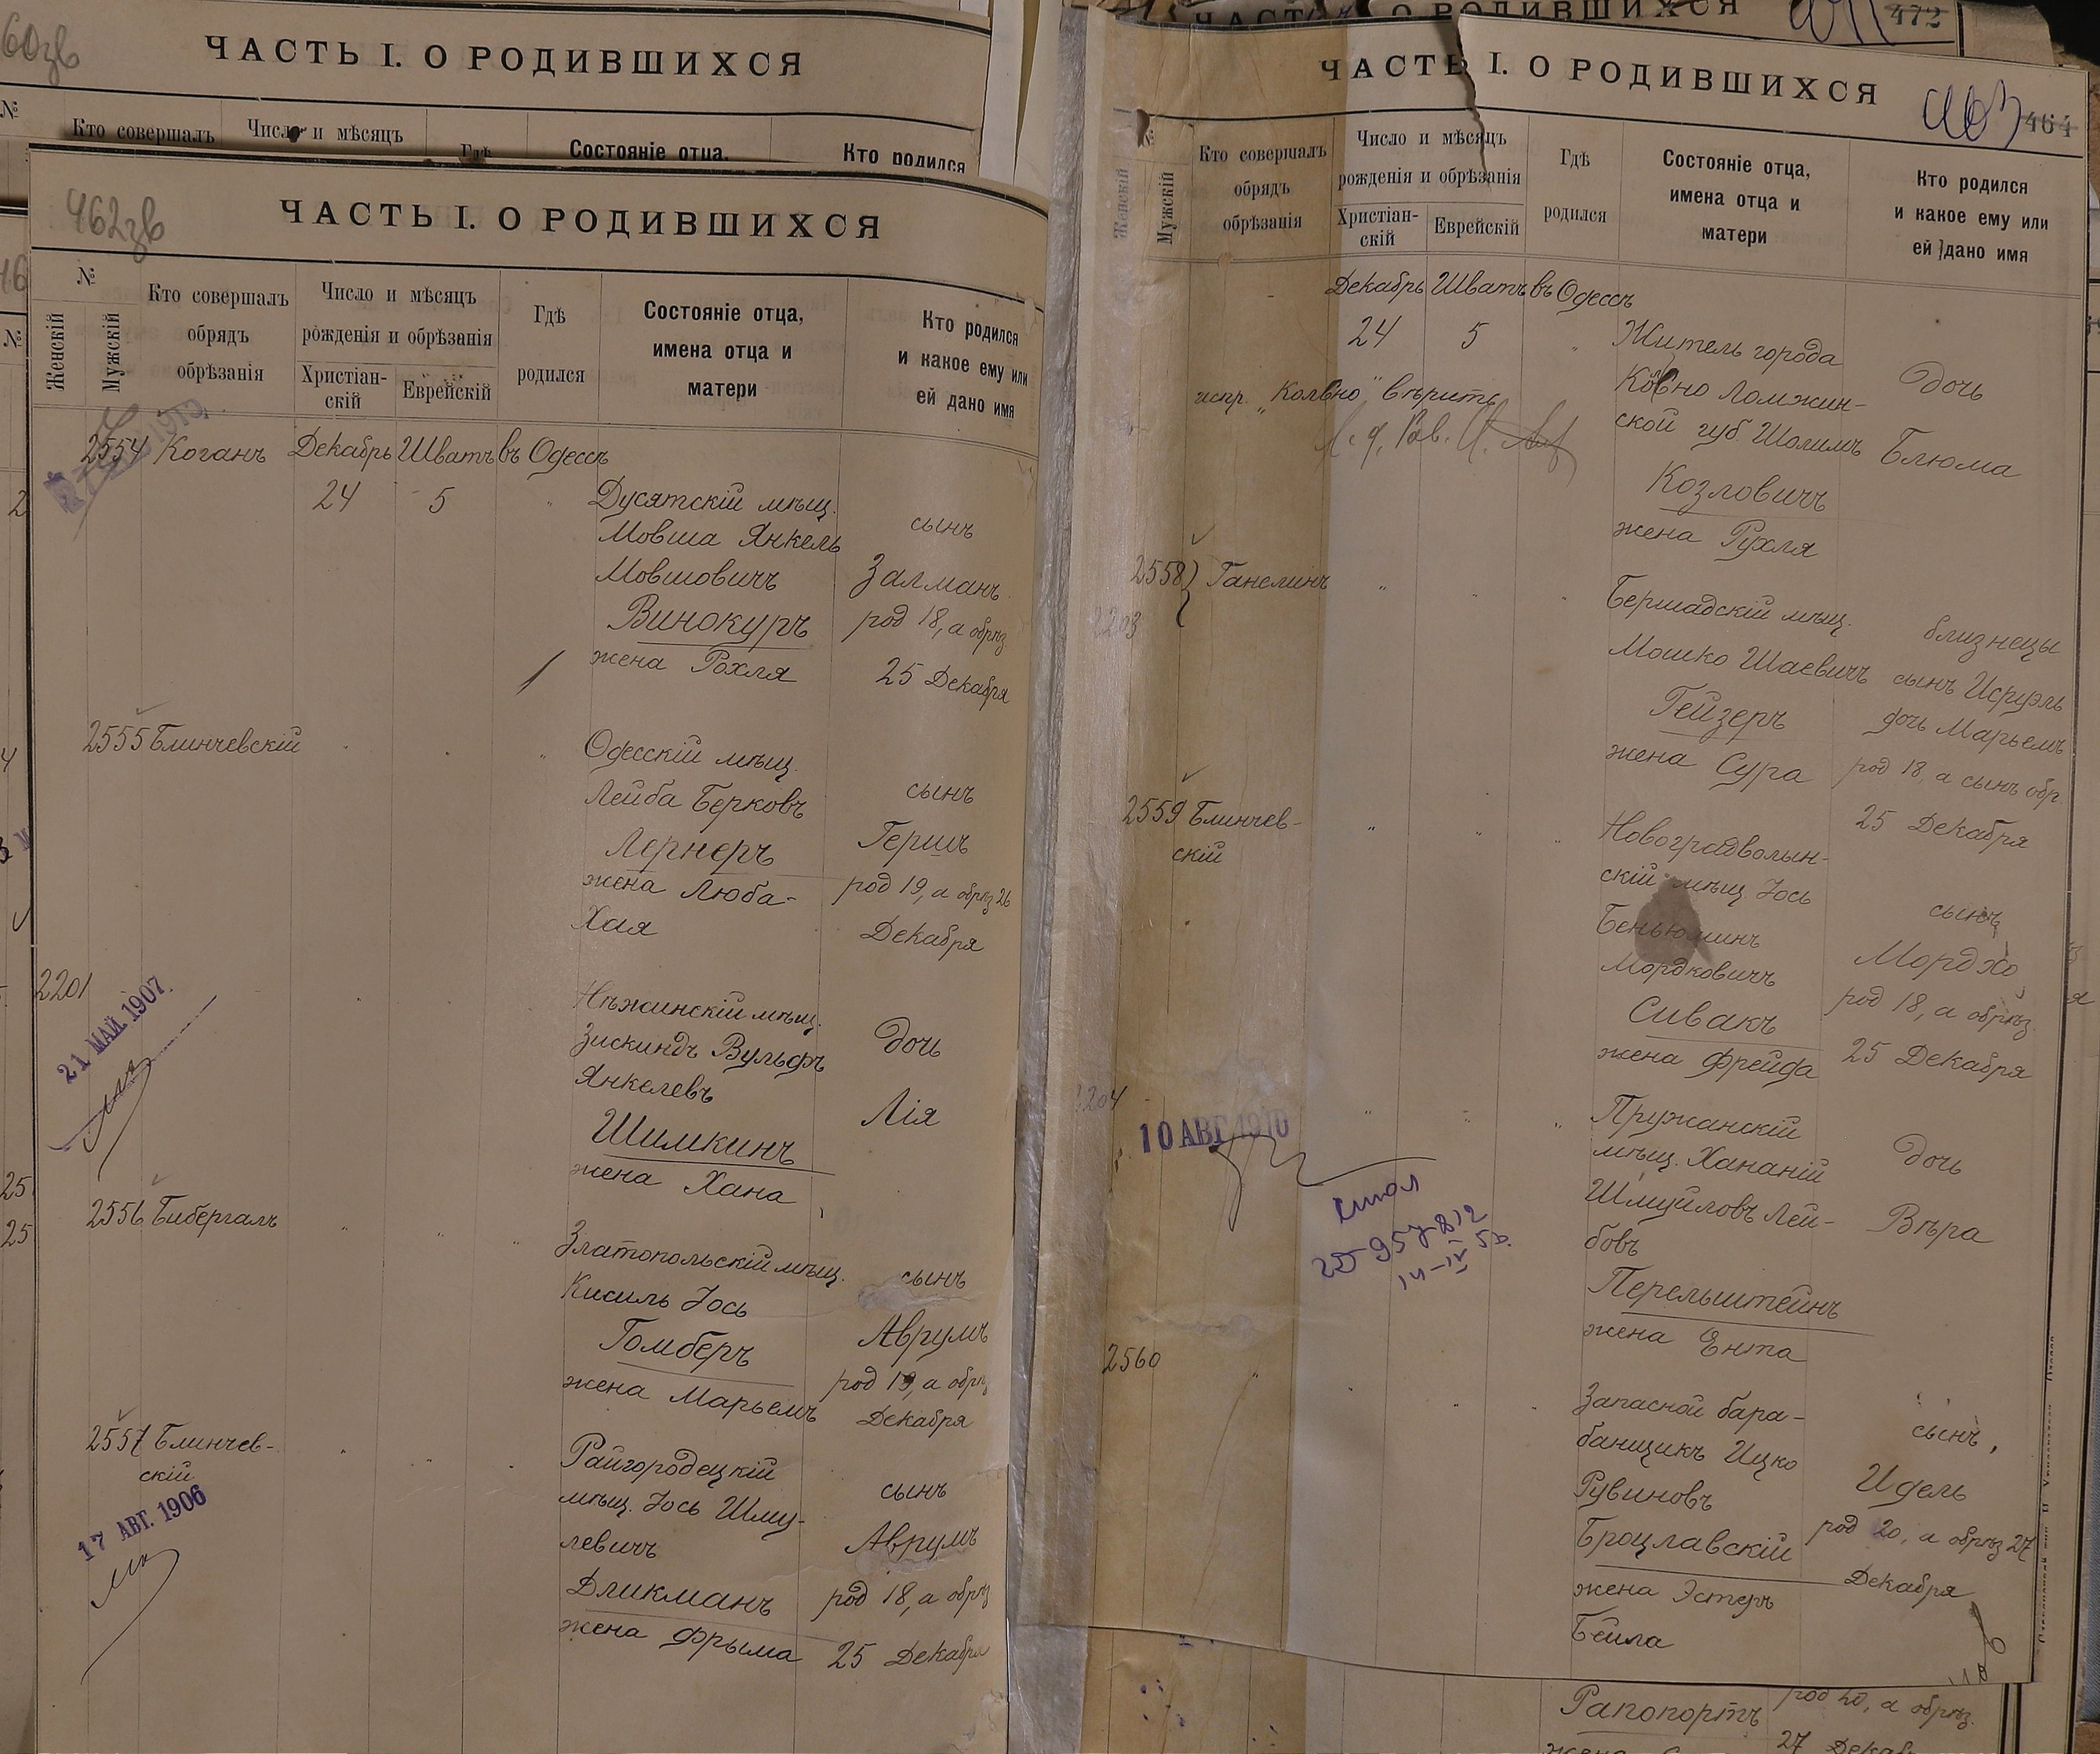 60зв
ЧАСТЬ I. О РОДИВШИХСЯ
№
Кто совершалъ
Число и мѣсяцъ
Гдѣ
Состояніе отца,
Кто родился
462зв
ЧАСТЬ I. О РОДИВШИХСЯ
№
Женскій
Мужскій
Кто совершалъ
обрядъ
обрѣзанія
Число и мѣсяцъ
рожденія и обрѣзанія
Христіан-
скій
Еврейскій
Гдѣ
родился
Состояніе отца,
имена отца и
матери
Кто родился
и какое ему или
ей дано имя
2554 Коганъ Декабрь Шватъ въ Одессѣ
24 5
Дусятскій мѣщ.
Мовша Янкель
Мовшовичъ
Винокуръ
жена Рохля
сынъ
Залманъ
род 18, а обрѣз.
25 Декабря
2555 Блинчевскій
Одесскій мѣщ.
Лейба Берковъ
Лернеръ
жена Люба-
Хая
сынъ
Гершъ
род 19, а обрѣз 26
Декабря
2201
21 МАЙ. 1907.
Нѣжинскій мѣщ.
Зискиндъ Вульфъ
Янкелевъ
Шимкинъ
жена Хана
дочь
Лія
2556 Бибергалъ
Златопольскій мѣщ.
Кисиль Іось
Гомберъ
жена Марьемъ
сынъ
Аврумъ
род 19, а обрѣз
Декабря
2557 Блинчев-
скій
17 АВГ. 1906
Райгородецкій
мѣщ. Іось Шму-
левичъ
Дликманъ
жена Фрыма
сынъ
Аврумъ
род 18, а обрѣз
25 Декабря
ЧАСТЬ I. О РОДИВШИХСЯ
472
ЧАСТЬ I. О РОДИВШИХСЯ
463
464
№
Женскій
Мужскій
Кто совершалъ
обрядъ
обрѣзанія
Число и мѣсяцъ
рожденія и обрѣзанія
Христіан-
скій
Еврейскій
Гдѣ
родился
Состояніе отца,
имена отца и
матери
Кто родился
и какое ему или
ей дано имя
Декабрь Шватъ въ Одессѣ
24 5
испр. „Колвно" вѣрить
Житель города
Ковно Ломжин-
ской губ. Шолимъ
Козловичъ
жена Рухля
дочь
Блюма
2558 Ганелинъ
2203
Бершадскій мѣщ.
Мошко Шаевичъ
Гейзеръ
жена Сура
близнецы
сынъ Исруэль
дочь Марьемъ
род 18, а сынъ обр.
25 Декабря
2559 Блинчев-
скій
Новоградволын-
скій мѣщ. Іось
Беньюминъ
Мордковичъ
Сивакъ
жена Фрейда
сынъ
Мордхо
род 18, а обрѣз.
25 Декабря
2204
10 АВГ 1910
Пружанскій
мѣщ. Хананій
Шмуйловъ Лей-
бовъ
Перельштейнъ
жена Ента
дочь
Вѣра
2560
Запасной бара-
банщикъ Ицко
Рувиновъ
Броцлавскій
жена Эстеръ
Бейла
сынъ,
Идель
род 20, а обрѣз 27
Декабря
Рапопортъ
род 20, а обрѣз.
27 Декаб